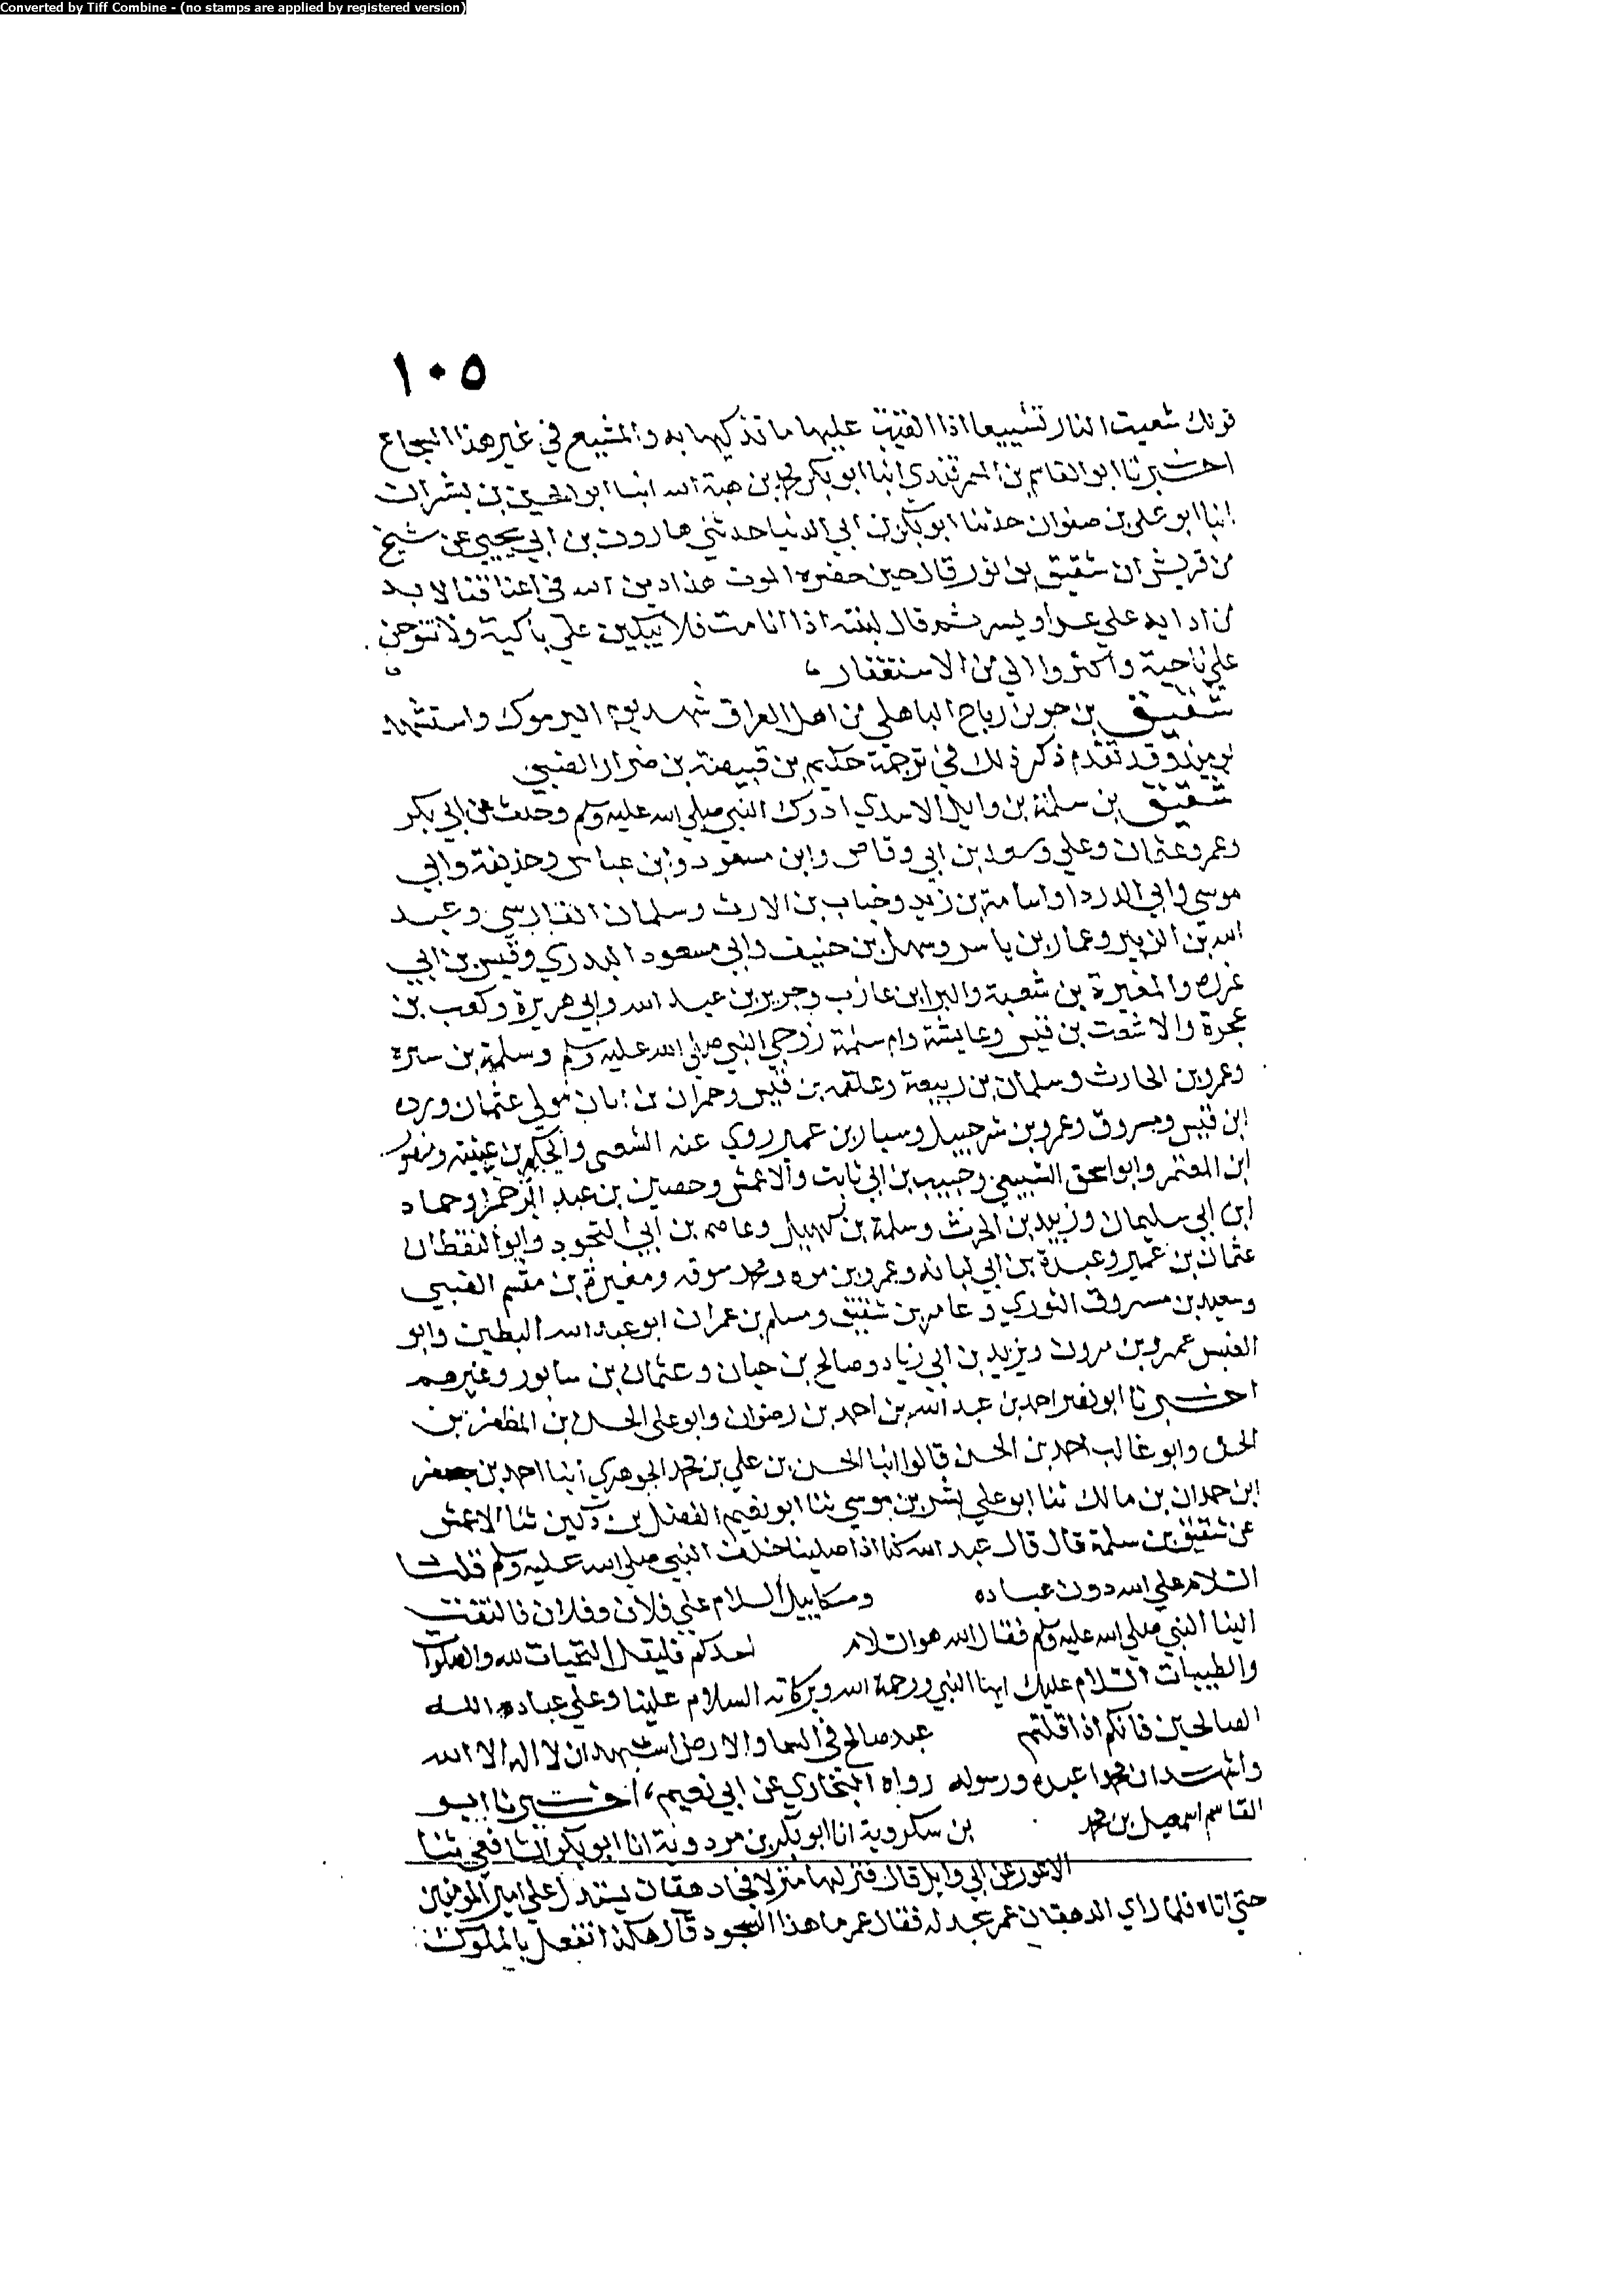 Converted by Tiff Combine - (no stamps are applied by registered version)
١٠٥
قولك شعيت النار تشييعا اذا القيت عليها ما تذكيها به والمشيع في غير هذا الشجاع
اخبرنا ابو القاسم بن السمرقندي انبا ابو بكر محمد بن هبة الله انبا ابو الحسين بن بشران
انبا ابو علي بن صفوان حدثنا ابو بكر بن ابي الدنيا حدثني هارون بن ابي يحيي عن شيخ
من قريش ان شقيق بن ثور قال حين حضره الموت هذا دين الله في اعناقنا لا بد
من اداىه علي عسر او يسر ثم قال لبنته اذا انا مت فلا تبكين علي باكية ولا تنوحن
علي ناحية واكثروا الي من الاستغفار
شقيق بن جو بن رباح الباهلي من اهل العراق شهد يوم اليرموك واستشهد
يوميذ وقد تقدم ذكر ذلك في ترجمة حكيم بن قبيصة بن ضرار الضبي
شقيق بن سلمة بن وايل الاسدي ادرك النبي صلي الله عليه وسلم وحدث عن ابي بكر
وعمر وعثمان وعلي وسعد بن ابي وقاص وابن مسعود وابن عباس وحذيفة وابي
موسي وابي الدردا واسامة بن زيد وخباب بن الارث وسلمان الفارسي وعبد
الله بن الزبير وعمار بن ياسر وسهل بن حنيف وابي مسعود البدري وقيس بن ابي
غرزه والمغيرة بن شعبة والبرا بن عازب وجرير بن عبد الله وابي هريرة وكعب بن
عجرة والاشعت بن قيس وعايشة وام سلمة زوجي النبي صلي الله عليه وسلم وسلمة بن سبرة
وعمرو بن الحارث وسلمان بن ربيعة وعلقمه بن قيس وحمران بن ابان مولي عثمان ورده
ابن قيس ومسروق وعمرو بن شرحبيل وسيار بن عمير روي عنه الشعبي والحكم بن عيينه ومنصور
ابن المعتمر وابو اسحق السبيعي وحبيب بن ابي ثابت والاعمش وحصين بن عبد الرحمن وحماد
ابن ابي سليمان وزبيد بن الحرث وسلمة بن كهيل وعاصم بن ابي النجود وابو اليقظان
عثمان بن عمير وعبدة بن ابي لبانه وعمرو بن مره ومحمد سوقه ومغيرة بن مقسم الضبي
وسعيد بن مسروق الثوري وعامر بن شقيق ومسلم بن عمران ابو عبد الله البطين وابو
العنبس عمرو بن مروان ويزيد بن ابي زياد وصالح بن حيان وعثمان بن سابور وغيرهم
اخبرنا ابو نصر احمد بن عبد الله بن احمد بن رضوان وابو علي الحسن بن المظفر بن
الحسن وابو غالب احمد بن الحسن قالوا انبا الحسن بن علي بن محمد الجوهري انبا احمد بن جعفر
ابن حمدان بن مالك ثنا ابو علي بشر بن موسي ثنا ابو نعيم الفضل بن دكين ثنا الاعمش
عن شقيق بن سلمة قال قال عبد الله كنا اذا صلينا خلف النبي صلي الله عليه وسلم قلنا
السلام علي الله دون عباده وميكاييل السلام علي فلان وفلان فالتفت
الينا النبي صلي الله عليه وسلم فقال الله هو السلام احدكم فليقل التحيات لله والصلوات
والطيبات السلام عليك ايها النبي ورحمة الله وبركاته السلام علينا وعلي عباده الله
الصالحين فانكم اذا قلتم عبد صالح في السما والارض اشهد ان لا اله الا الله
واشهد ان محمدا عبده ورسوله رواه البخاري عن ابي نعيم اخبرنا ابو
القاسم اسمعيل بن محمد بن سكروية انا ابو بكر بن مردوية انا ابو بكر الشافعي ثنا
الاعور عن ابي وايل قال فنزلها منزلا فجا دهقان يستدل علي امير المومنين
حتي اتاه فلما راي الدهقان عمر سجد له فقال عمر ما هذا السجود قال هكذا نفعل بالملوك